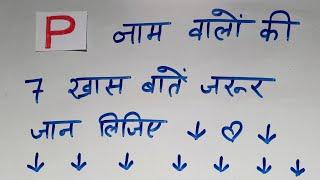 P नाम वालों की
7 खास बातें जरूर
जान लिजिए ↓ ♡ ↓
↓ ↓ ↓ ↓ ↓ ↓ ↓